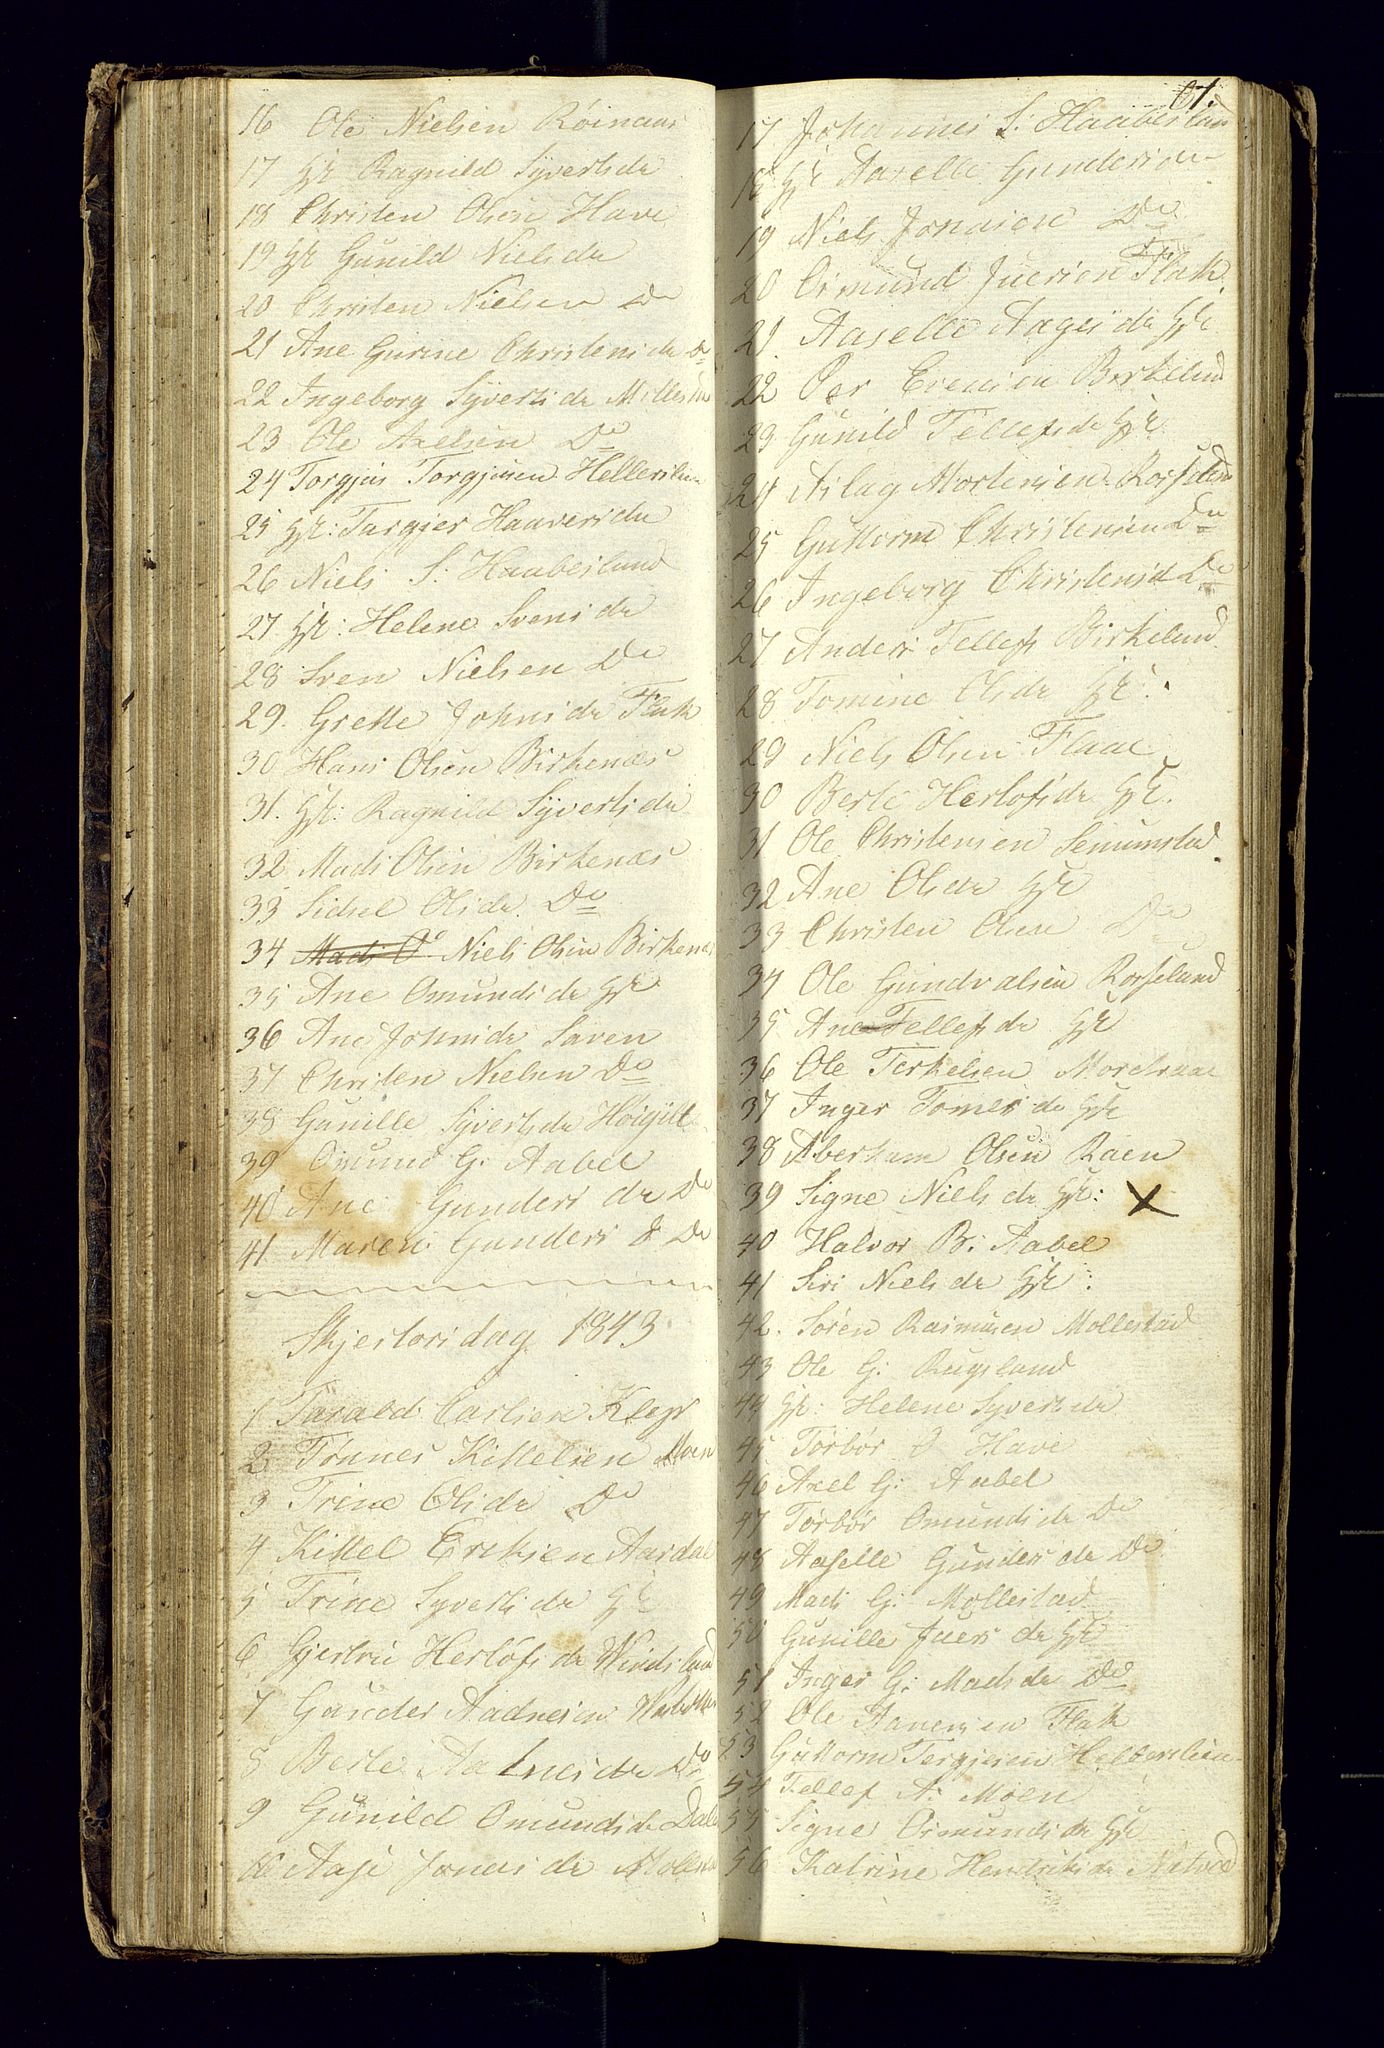 16 Ole Nielsen Røinaas
17 hst Ragnild Syvertsda
18 Christen Olsen Have
19 hst Gunild Nielsda
20 Christen Nielsen Do
21 Ane Gurine Christensda Do
22 Ingeborg Syvertsda
23 Ole Axelsen Do
24 Torgjus Torgjusen
25 hst: Targier Haaversda
26 Niels S: Haabesland
27 hst: Helene Svensda
28 Sven Nielsen Do
29. Grette Johnsda Flak
30 Hans Olsen Birkenæs
31. hst: Ragnild Syvertsda
32 Mads Olsen Birkenæs
33 Sidsel Olsda. Do
34 Niels Olsen Birkenæs
35 Ane Omundsda hst
36 Ane Johnsda Saven
37 Christen Nielsen Do
38 Gunille Syvertsda
39 Omund G: Aabel
40 Ane Gundersda Do
41 Maren Gunders d Do
Skjertorsdag 1843
1 Tarald Carlsen
2 Tønnes Kittelsen Moen
3 Trine Olsda Do
4 Kittel Eriksen Aardal
5 Trine Syvertsda hst
6 Gjertru Herlofsda
7 Gunder Aadnesen
8 Berte Do
9 Gunild Omundsda
10 Aase Jonasda
61.
17 Johannes S: Haabesland
18 hst Aaselle Gundersda
19 Niels Jonasen Do
20 Osmund Juersen Flak
21. Aaselle Aagesda hst
22 Per Evensen Birkeland
23 Gunild Tellefsda hst
24 Aslag Mortensen Rosseland
25 Guttorm Christensen Do
26 Ingeborg Christensd Do
27 Anders Tellefs Birkeland
28 Tomine Olsda hst.
29 Niels Olsen Flaae
30 Berte Herlofsda hst.
31 Ole Christensen Senumstad
32 Ane Olsda hst
33 Christen Olsen Do
34 Ole Gundvalsen Rosseland
35 Ane Tellefsda hst
36 Ole Terkelsen
37 Inger Tomesda hst
38 Aberham Olsen Raen
39 Signe Nielsda hst: X
40 Halvor B: Aabel
41 Siri Nielsda hst:
42. Søren Rasmusen Mollestad
43 Ole G: Rugsland
44 hst: Helene Syvertsda
45 Torbør O Have
46 Axel G: Aabel
47 Torbør Omundsda Do
48 Aaselle Gundersda Do
49 Mads G: Mollestad
50 Gunille Juersda hst
51 Inger G: Madsda Do
52 Ole Aanensen Flak
53 Guttorm Tergjesen
54 Tellef A: Moen
55 Signe Osmundsda hst
56 Katrine Hendriksda